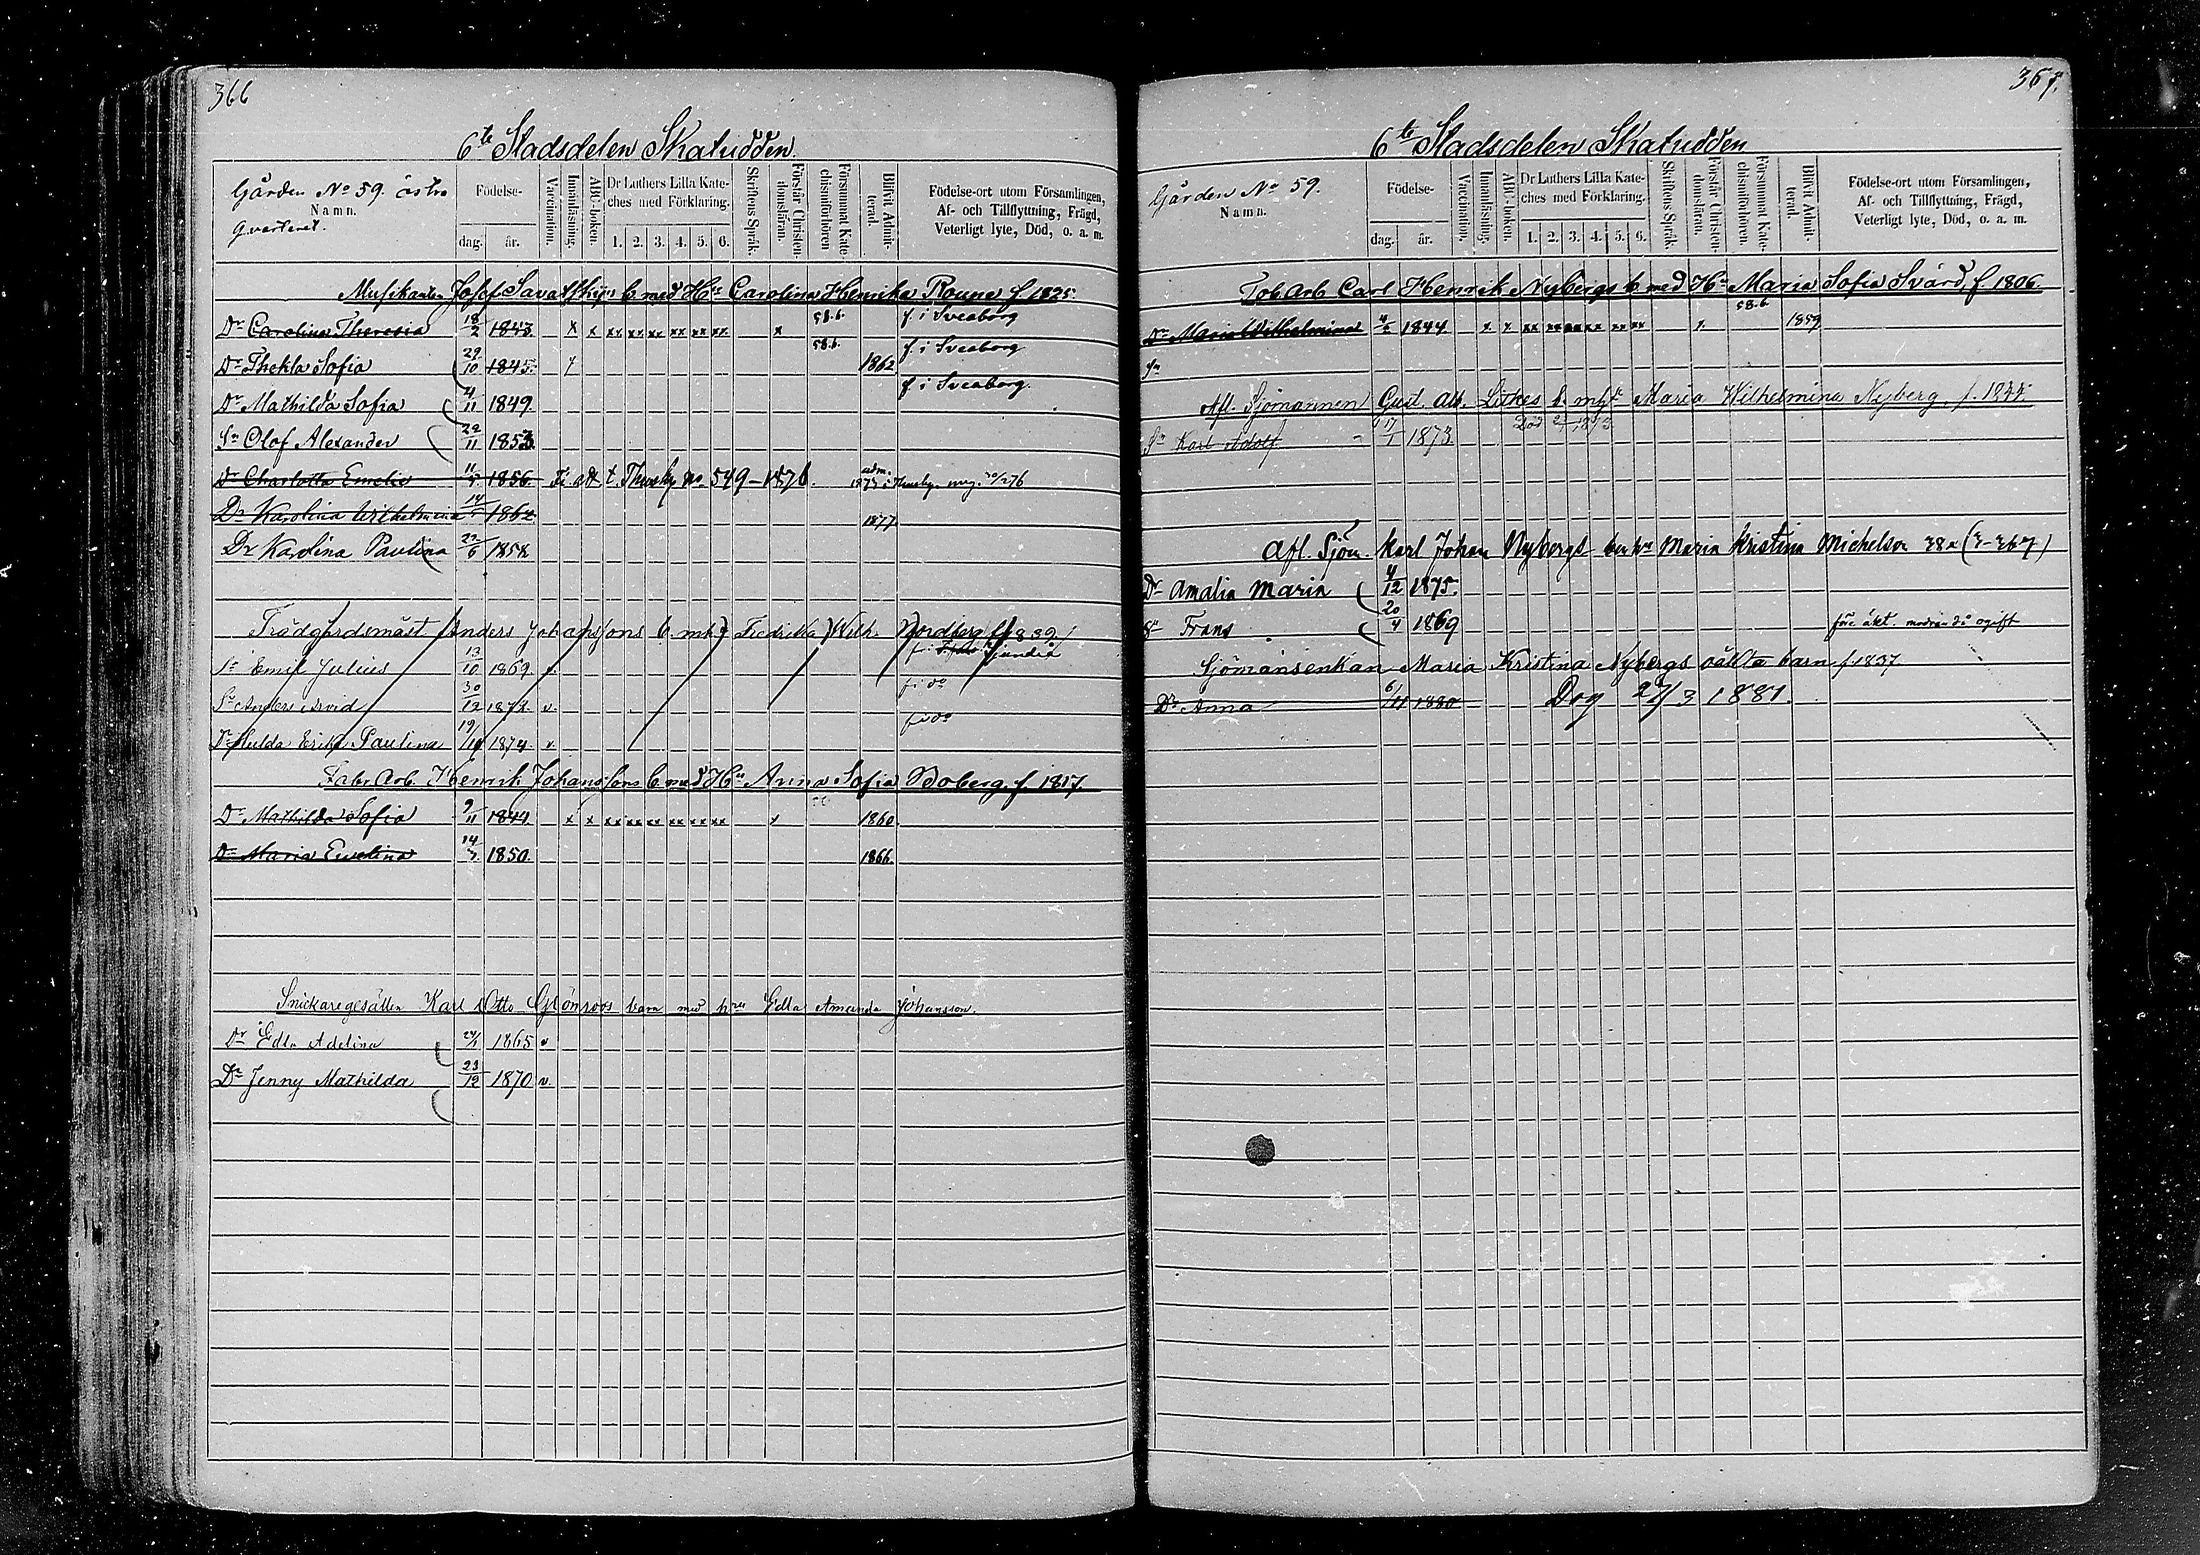 366
6te Stadsdelen Skatudden.
Gården No 59. östra
Namn.
qvarteret.
Födelse-
dag. år.
Vaccination.
Innanläsning.
ABC-boken.
Dr Luthers Lilla Kate-
ches med Förklaring.
1. 2. 3. 4. 5. 6.
Skriftens Språk.
Förstår Christen-
domsläran.
Försummat Kate-
chismiförhören
Blifvit Admit-
terad.
Födelse-ort utom Församlingen,
Af- och Tillflyttning, Frägd,
Veterligt lyte, Död, o. a. m.
Musikanten Josef b. med Hu Carolina Henrika f. 1825.
Dr Carolina Theresia 18/2 1843 x x xx xx xx xx xx xx x 58.6. f. i Sveaborg
Dr Thekla Sofia 29/10 1845 58.6. 1862 f. i Sveaborg
Dr Mathilda Sofia 4/11 1849. f. i Sveaborg.
Sn Olof Alexander 29/11 1853
Dr Charlotta Emelie 1856 No 549 - 1876. adm. 1873
Dr Karolina Wilhelmina 1862 1877
Dr Karolina Paulina 22/6 1858
Trädgårdsmäst Anders Johanssons b. mh Fredrika Wilh. Nordberg f. 1839
Sn Emil Julius 13/10 1869 v. f. i Sjundeå
Sn Anders Arvid 30/12 1872 v. f. i do
Dr Hulda Erika Paulina 1874 v. f. i do
Fabr. Arb. Henrik Johanssons b. med Hu Anna Sofia Boberg. f. 1817.
Dr Mathilda Sofia 9/11 1844 x x xx xx xx xx xx xx x 1860
Dr Maria Evelina 14/7 1850. 1866
Snickaregesällen Karl Otto Grönroos barn med hru Edla Amanda Johansson.
Dr Edla Adelina 1865 v
Dr Jenny Mathilda 23/12 1870 v.
367.
6te Stadsdelen Skatudden
Gården No 59.
Namn.
Födelse-
dag. år.
Vaccination.
Innanläsning.
ABC-boken.
Dr Luthers Lilla Kate-
ches med Förklaring.
1. 2. 3. 4. 5. 6.
Skriftens Språk.
Förstår Christen-
domsläran.
Försummat Kate-
chismiförhören.
Blifvit Admit-
terad.
Födelse-ort utom Församlingen,
Af- och Tillflyttning, Frägd,
Veterligt lyte, Död, o. a. m.
Tob. Arb. Carl Henrik Nybergs b. med Hu Maria Sofia Svärd, f. 1806.
Dr Maria Wilhelmina 1844 x x xx xx xx xx xx xx x 58.6. 1859
Sn
Afl. Sjömannen Gust. Ad. b. Maria Wilhelmina Nyberg, f. 1844
Sn Karl Adolf 17/1 1873 Död 1873
Afl. Sjöm. Karl Johan Nybergs Maria Kristina Michelson
Dr Amalia Maria 4/12 1875.
Sn Frans 20/4 1869 före äkt. modren då ogift
Sjömansenkan Maria Kristina Nybergs oäkta barn f. 1837
Dr Anna 6/11 1880 Dog 1881.